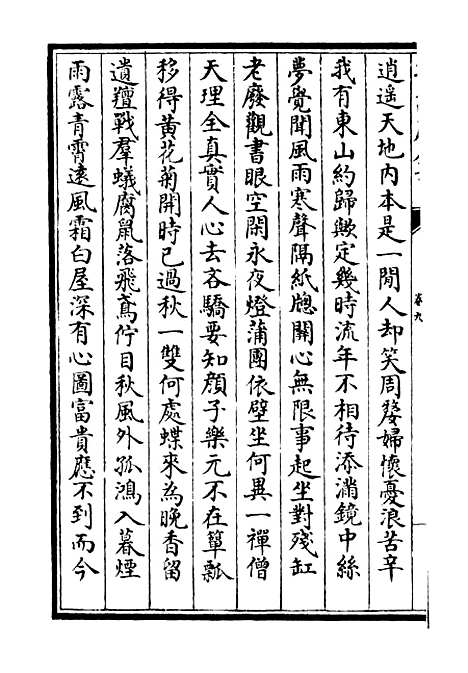 逍遥天地内本是一閒人却笑周嫠婦懷憂浪苦辛
我有東山約歸歟定幾時流年不相待添滿鏡中絲
夢覺聞風雨寒聲隔紙牕關心無限事起坐對殘缸
老廢觀書眼空閑永夜燈蒲團依壁坐何異一禪僧
天理全真實人心去吝驕要知顔子樂元不在簞瓢
移得黄花菊開時已過秋一雙何處蝶來為晚香留
遺羶戰羣蟻腐鼠落飛鳶佇目秋風外孤鴻入暮煙
雨露青霄遠風霜白屋深有心圖富貴應不到而今
卷九